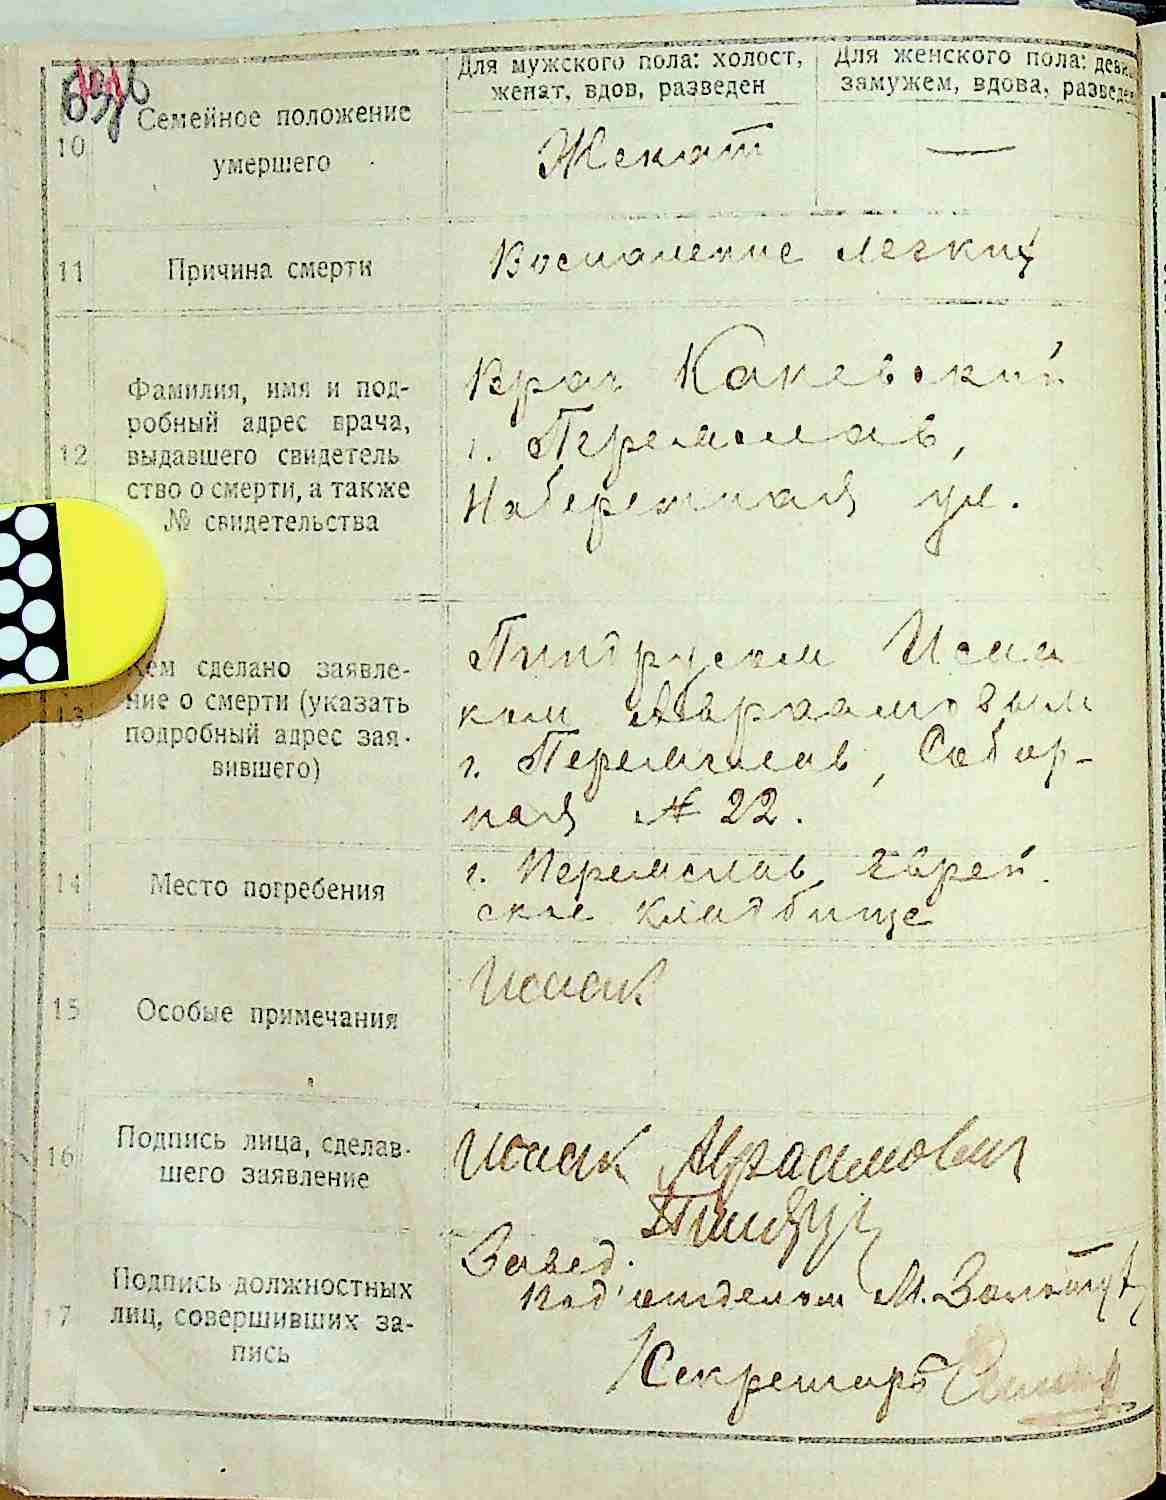 Для мужского пола: холост, женат, вдов, разведен
Для женского пола: девица, замужем, вдова, разведена
10
Семейное положение
умершего
Женат
—
11
Причина смерти
Воспаление легких
12
Фамилия, имя и под-
робный адрес врача,
выдавшего свидетель
ство о смерти, а также
№ свидетельства
Врач Каневский
г. Переяслав,
Набережная ул.
13
Кем сделано заявле-
ние о смерти (указать
подробный адрес зая-
вившего)
Пиндрусом Исаа
ком Авраамовым
г. Переяслав, Собор-
ная № 22.
14
Место погребения
г. Переяслав, еврей
ское кладбище
15
Особые примечания
Исаак
16
Подпись лица, сделав-
шего заявление
Исаак Абрамович
Пиндрус
17
Подпись должностных
лиц, совершивших за-
пись
Завед.
Под'отделом М.
Секретарь